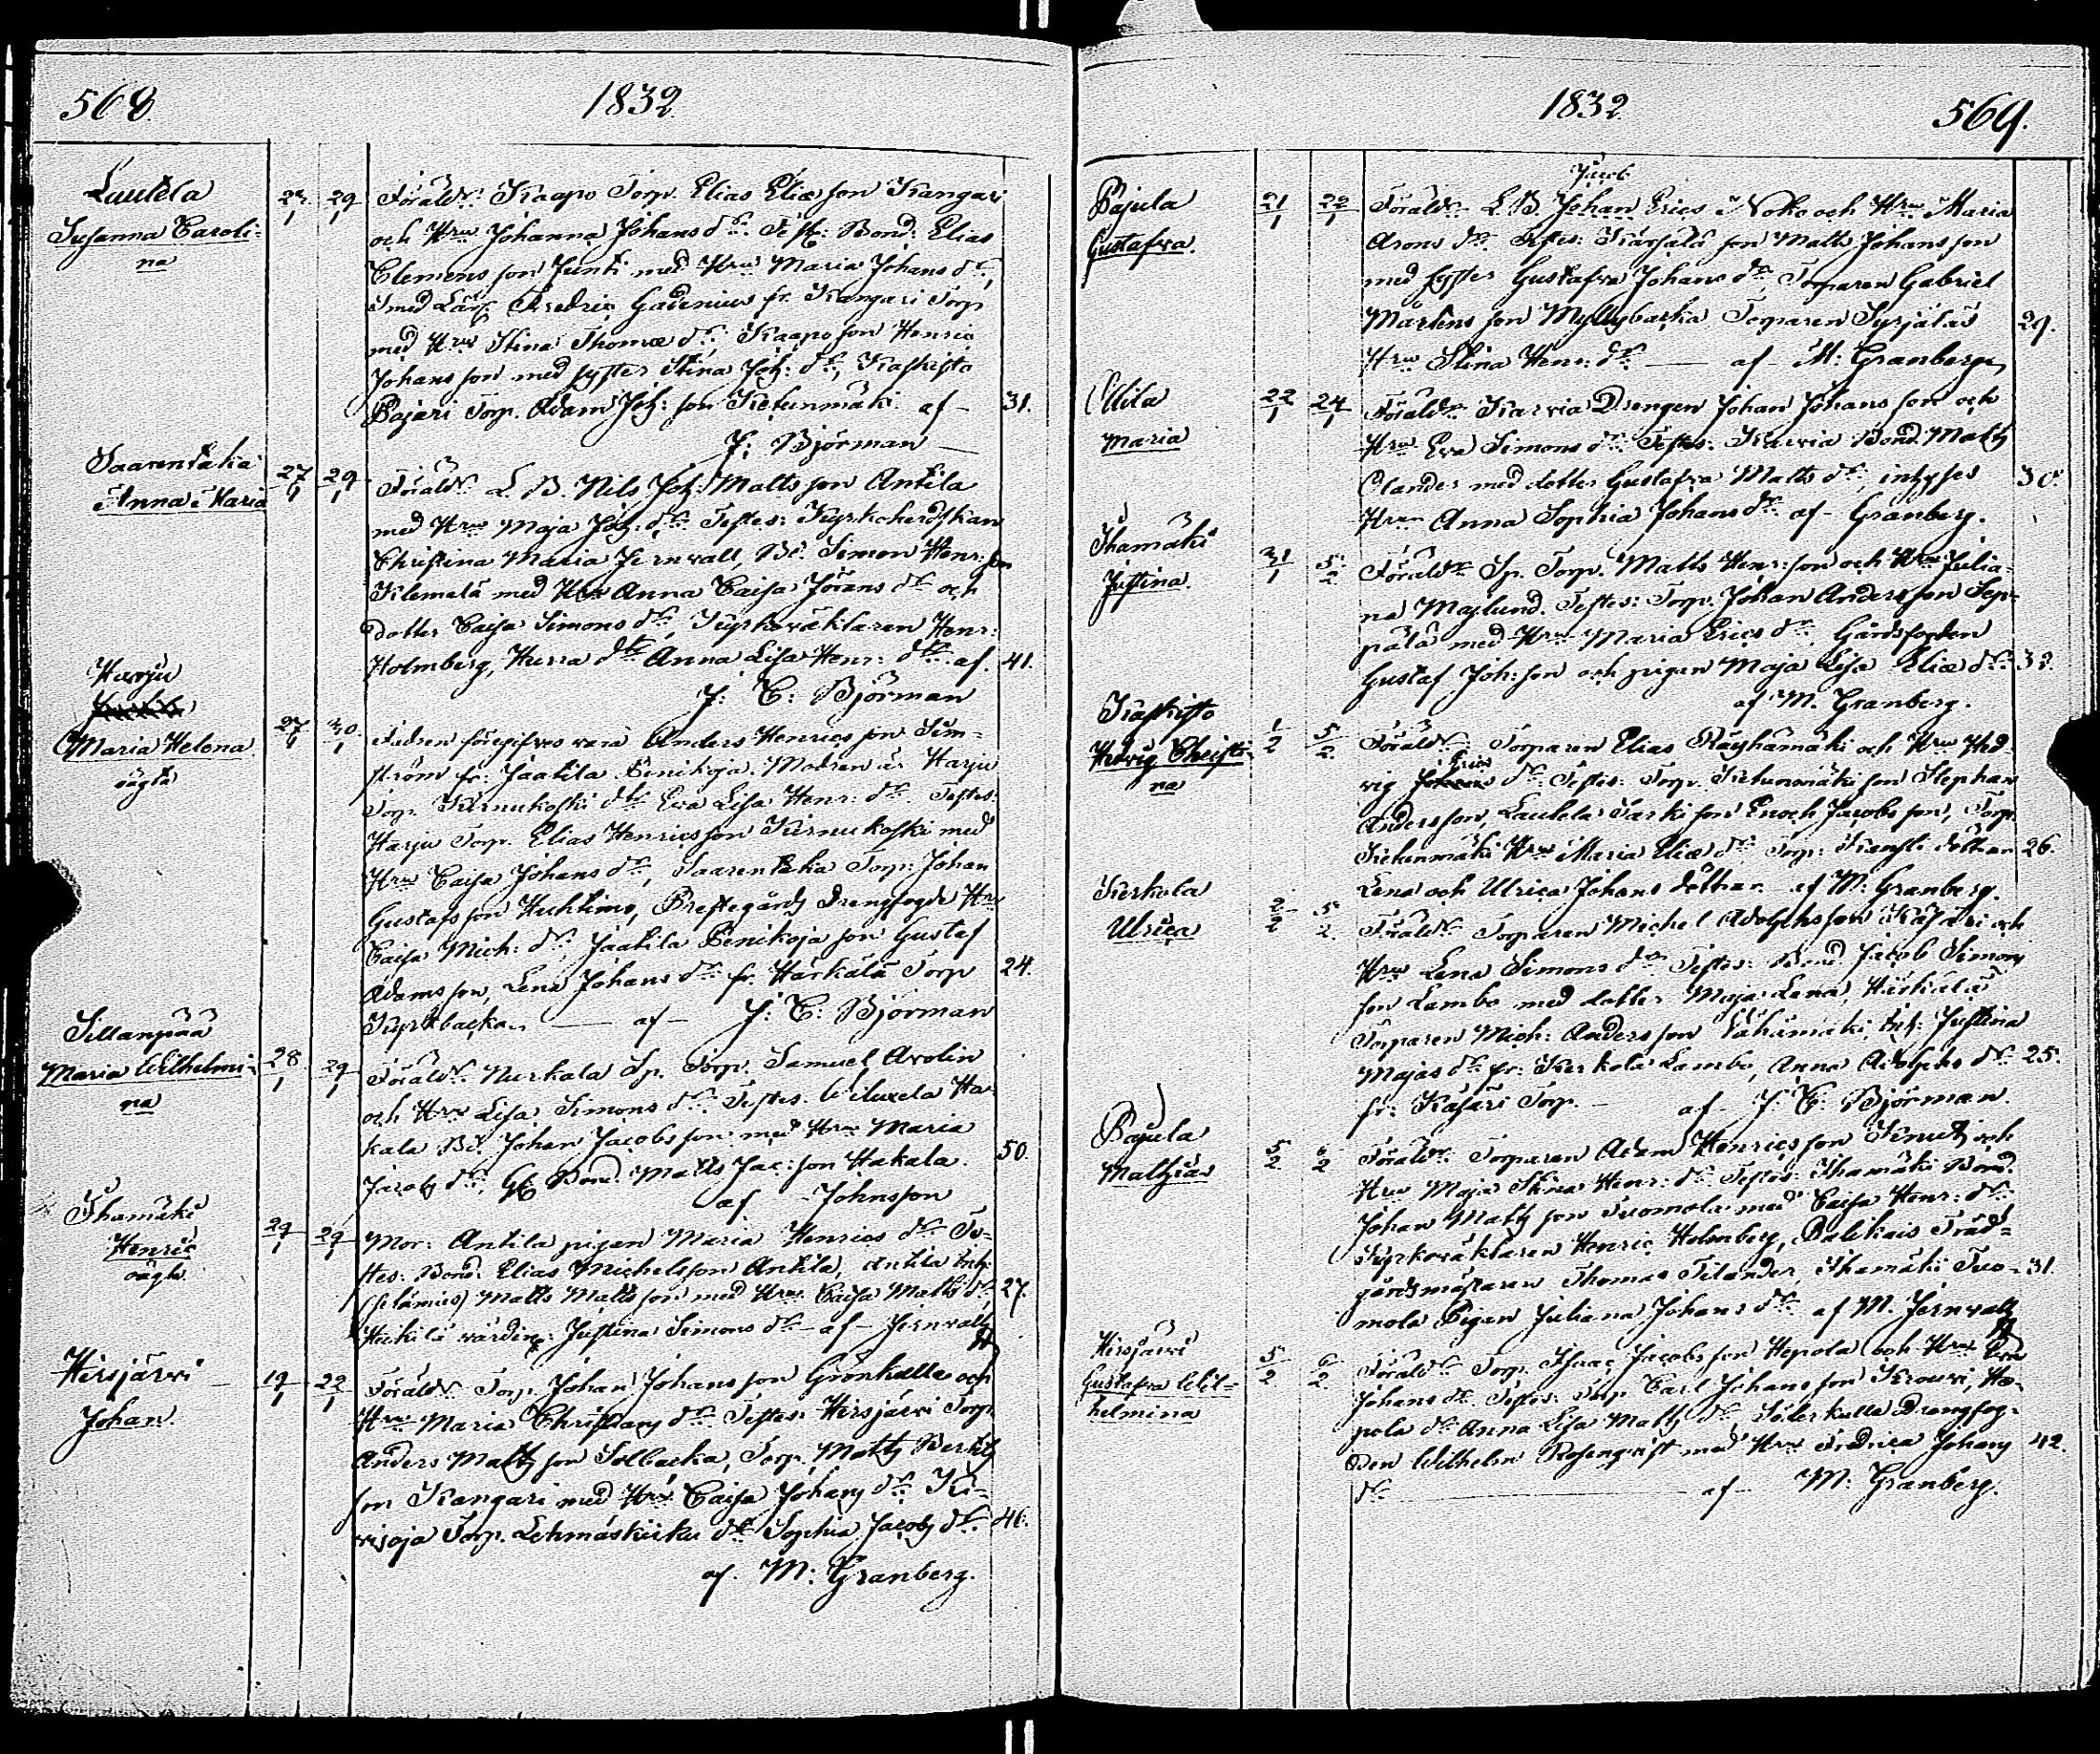 568. 1832.
Lautela
Susanna Caroli=
na
29/1 Föräldr: Kaapo Torp. Elias Eliæ son Kangari
och Hru Johanna Johans dr. Test: Bond: Elias
Clemens son Junti med Hru Maria Johans dr,
Smed Lärl. Fredric Gadenius fr. Kangari Torp
med Hru Stina Thomæ dr, Kaapo son Henric
Johans son med syster Stina Joh: dr, Kaskisto
Bajari Torp. Adam Joh: son Ketunmäki af – 31.
J: Björman
Saarentaka
Anna Maria
27/1 29/1 Föräldr: L. B. Nils Joh: Matts son Antila
med Hru Maja Joh: dr. Testes: Kyrkoherdskan
Christina Maria Jernvall, Bd. Simon Henr: son
Klemelä med Hru Anna Caisa Jörans dr och
dotter Caisa Simons dr, Kyrkoväktaren Henr:
Holmberg, Hurra dtr Anna Lisa Henr: dtr. af. 41.
J: C: Björman
Harju
Maria Helena
oägta
27/1 30/1 Fadren föregifves vara Anders Henrics son Sim=
ström fr: Jaatila Penikoja. Modren är Harju
Torp. Kirnukoski dtr Eva Lisa Henr: dr. Testes:
Harju Torp. Elias Henrics son Kirnukoski med
Hru Caisa Johans dr, Saarentaka Torp: Johan
Gustafs son Huhtimo, Prestegårds Drengfogde Hru
Caisa Mich: dr, Jaatila Penikoja son Gustaf
Adams son, Lena Johans dr fr. Härkälä Torp 24.
Kyrkbacka. — af – J: C: Björman
Sillanpää
Maria Wilhelmi=
na
28/1 29/1 Föräldr: Nurkala Sp. Torp. Samuel Avolin
och Hru Lisa Simons dr. Testes. Wiluxela Ha=
kala Bd. Johan Jacobs son med Hru Maria
Jacobs dr, Gl. Bond. Matts Jac: son Hakala. 50.
af Johnsson
Ihamäki
Henric
oägta
29/1 29/1 Mor: Antila pigan Maria Henrics dr Te=
stes: Bond. Elias Michelsson Antila, Antila Inh:
Matts Matts son med Hru. Caisa Matts dr, 27.
Heikilä värdin: Justina Simons dr – af – Jernvall
Hirsjärvi
Johan.
19/1 22/1 Föräldr: Torp. Johan Johans son Grönkulla och
Hru Maria Christians dr. Testes: Hirsjärvi Torp.
Anders Matts son Solbacka, Torp. Matts Bertils
son Kangari med Hru Caisa Johans dr. Ki=
visoja Torp. Lehmäskiiku dtr Sophia Jacobs dr. 46.
af. M: Granberg.
1832. 569.
Pajula
Gustafva.
21/1 22/1 Föräldr: L. B. Johan Jacob Erics Noko och Hru Maria
Arons dr. Testes: Kärsälä son Matts Johans son
med syster Gustafva Johans dr, Torparen Gabriel
Mårtens son Myllybacka Torparen Syrjäläs 29.
Hru Stina Henr: dr. — af – M: Granberg
Ellilä
Maria
22/1 24/1 Föräldr: Karvia Drengen Johan Johans son och
Hru Eva Simons dr. Testes: Karvia Bond. Matts
Olander med dotter Gustafva Matts dr, inhyses 30.
Hru Anna Sophia Johans dr. af – Granberg.
Ihamäki
Justina.
31/1 5/2 Föräldr: Sp. Torp. Matts Henr: son och Hru Julia=
na Maslund. Testes: Torp. Johan Anders son Sep=
pälä med Hru Maria Erics dr. Gårdsfogden
Gustaf Joh: son och pigan Maja Lisa Eliæ dr.
af M. Granberg.
Kaskisto
Hedvig Christi=
na
1/2 5/2 Föräldr: Torparen Elias Räyhämäki och Hru Hed=
vig Erics dr. Testes: Torp. Ketunmäki son Stephan
Anders son, Lautela Särki son Enoch Jacobs son, Torp.
Ketunmäki Hru Maria Eliæ dr Torp: Kansti döttrar 26.
Lena och Ulrica Johans döttrar. af M: Granberg.
Kerkola
Ulrica
2/2 5/2 Föräldr: Torparen Michel Adolphs son Kasari och
Hru Lena Simons dr. Testes: Bond Jacob Simons
son Lambo med dotter Maja Lena, Härkälä
Torparen Mich: Anders son Lähämäki, Inh: Justina
Majas dr fr: Kerkola Lambo, Anna Adolphs dr 25.
fr: Kasari Torp. — af – J: C: Björman.
Pajula
Mathias
5/2 6/2 Föräldr: Torparen Adam Henrics son Knuts och
Hru Maja Stina Henr: dr. Testes: Ihamäki Bond.
Johan Matts son Tuomola med Caisa Henr: dr.
Kyrkoväktaren Henric Holmberg, Palikais Träd=
gårdsmästaren Thomas Tilander, Ihamäki Tuo= 31.
mola Pigan Juliana Johans dr. af M. Jernvall
Hirsjärvi
Gustafva Wil=
helmina
5/2 6/2 Föräldr: Torp. Isaac Jacobs son Hepola och Hru Eva
Johans dr. Testes: Torp Carl Johans son Krouvi, He=
pola dr. Anna Lisa Matts dr, Söderkulla Drengfog=
den Wilhelm Rosenqvist med Hru Fredrica Johans 42.
dr — af – M: Granberg.